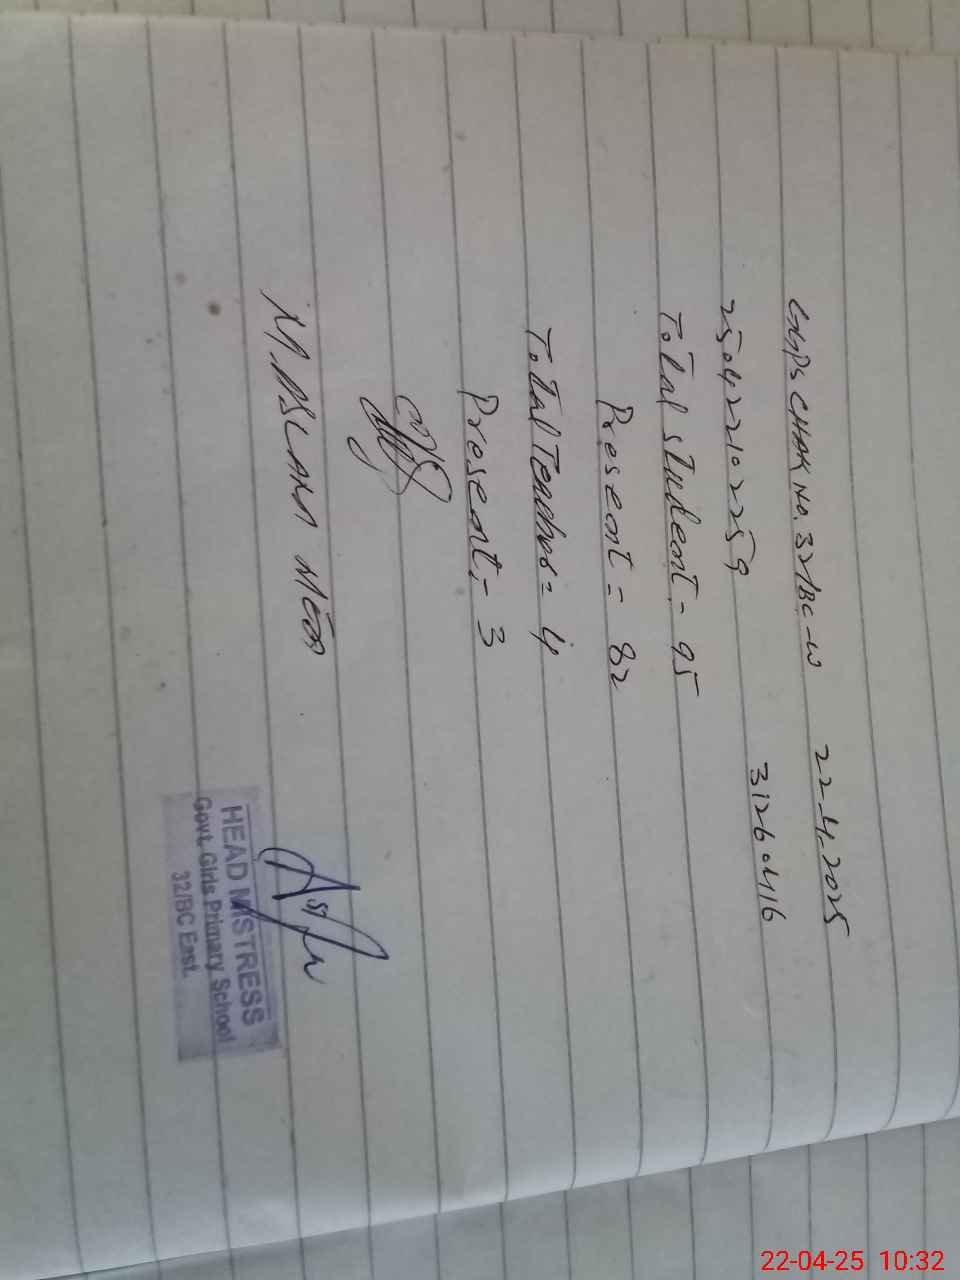 GGPS CHAK No. 32/BC-W 22.4.2025
250422102259 31260416
Total student - 95
Present = 82
Total Teachers = 4
Present :- 3
M. ASLAM MEO
HEAD MISTRESS
Govt. Girls Primary School
32/BC East.
22-04-25 10:32